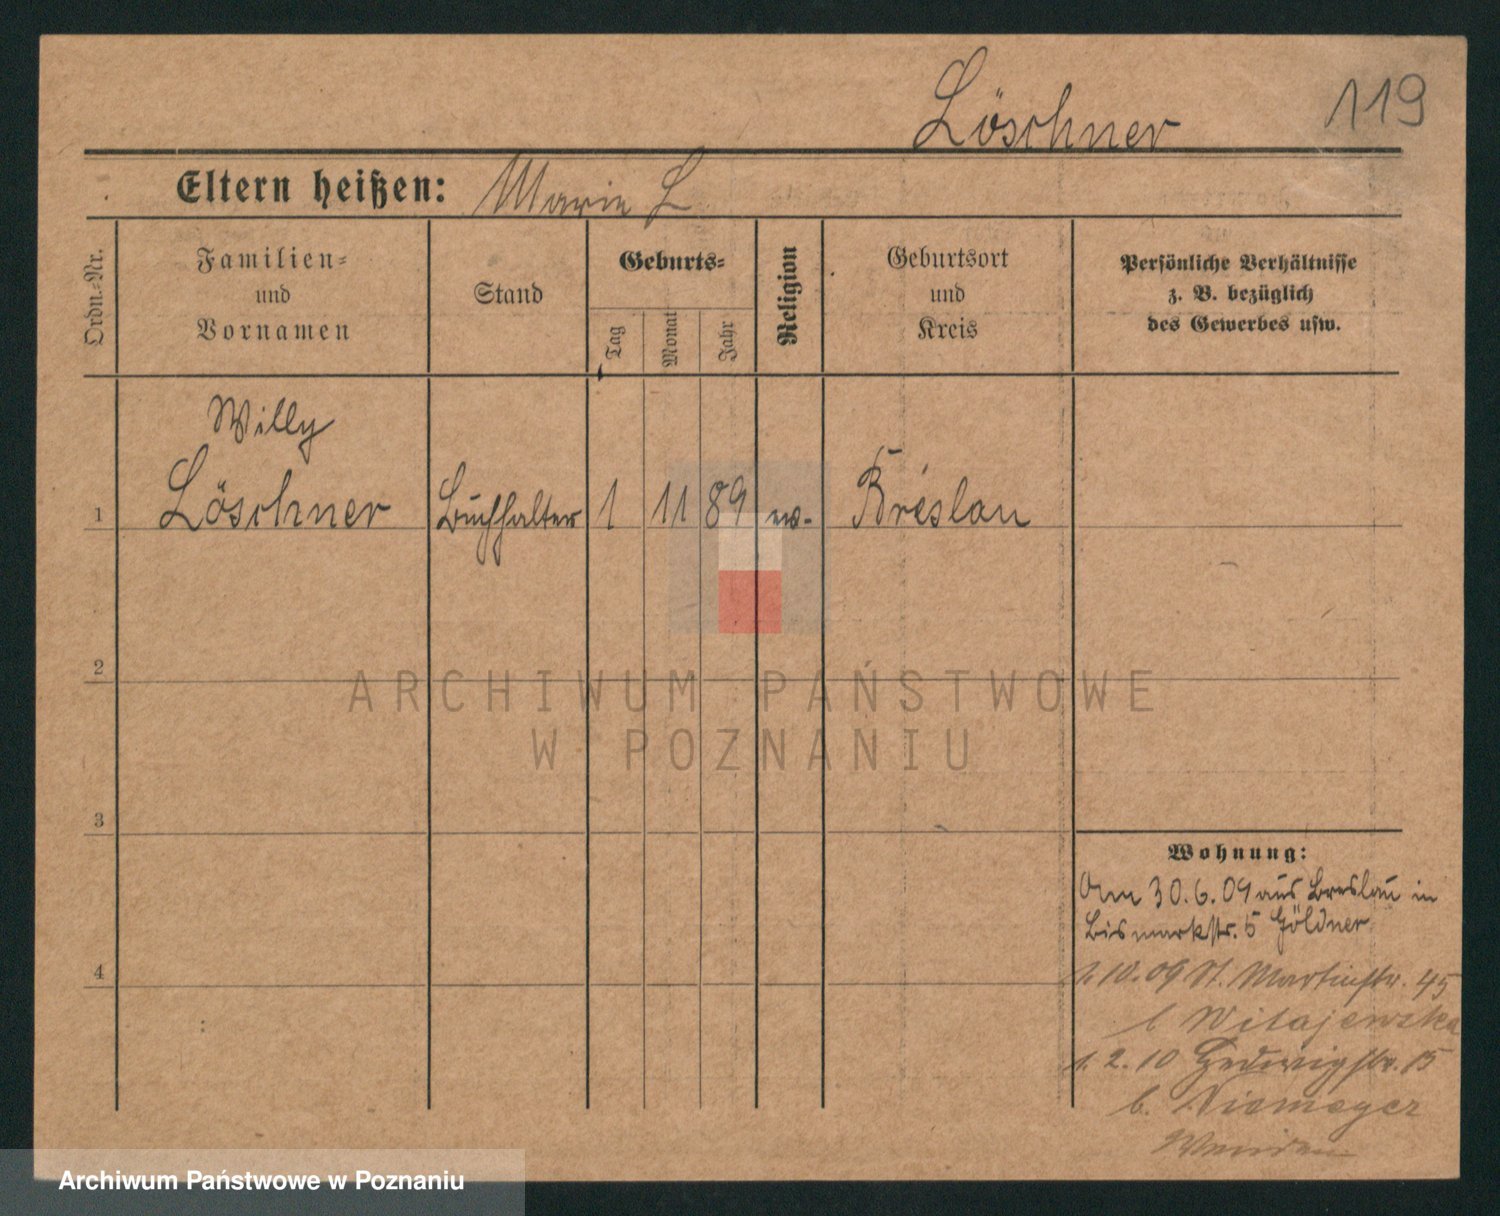 Löschner
119
Eltern heißen: Marie L
Ordn.-Nr.
Familien-
und
Vornamen
Stand
Geburts-
Tag
Monat
Jahr
Religion
Geburtsort
und
Kreis
Persönliche Verhältnisse
z. B. bezüglich
des Gewerbes usw.
Willy
1 Löschner Buchhalter 1 11 89 ev. Breslau
2
3
4
Wohnung:
Am 30.6.09 aus Breslau in
Bismarkstr. 5 Göldner
1.10.09 St. Martinstr. 45
b Witajewska
1.2.10 Hedwigstr. 15
b. Niemeyer
ARCHIWUM PAŃSTWOWE
W POZNANIU
Archiwum Państwowe w Poznaniu